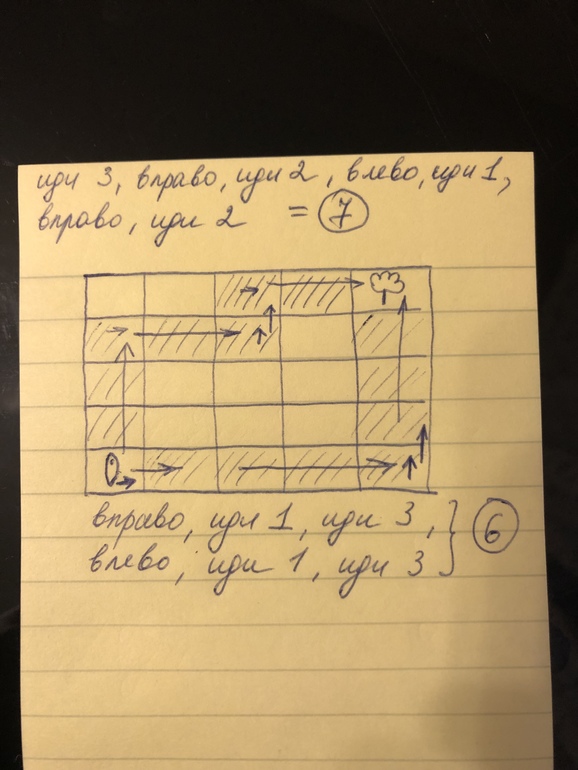 иди 3, вправо, иди 2, влево, иди 1,
вправо, иди 2 = 7
вправо, иди 1, иди 3, } 6
влево, иди 1, иди 3